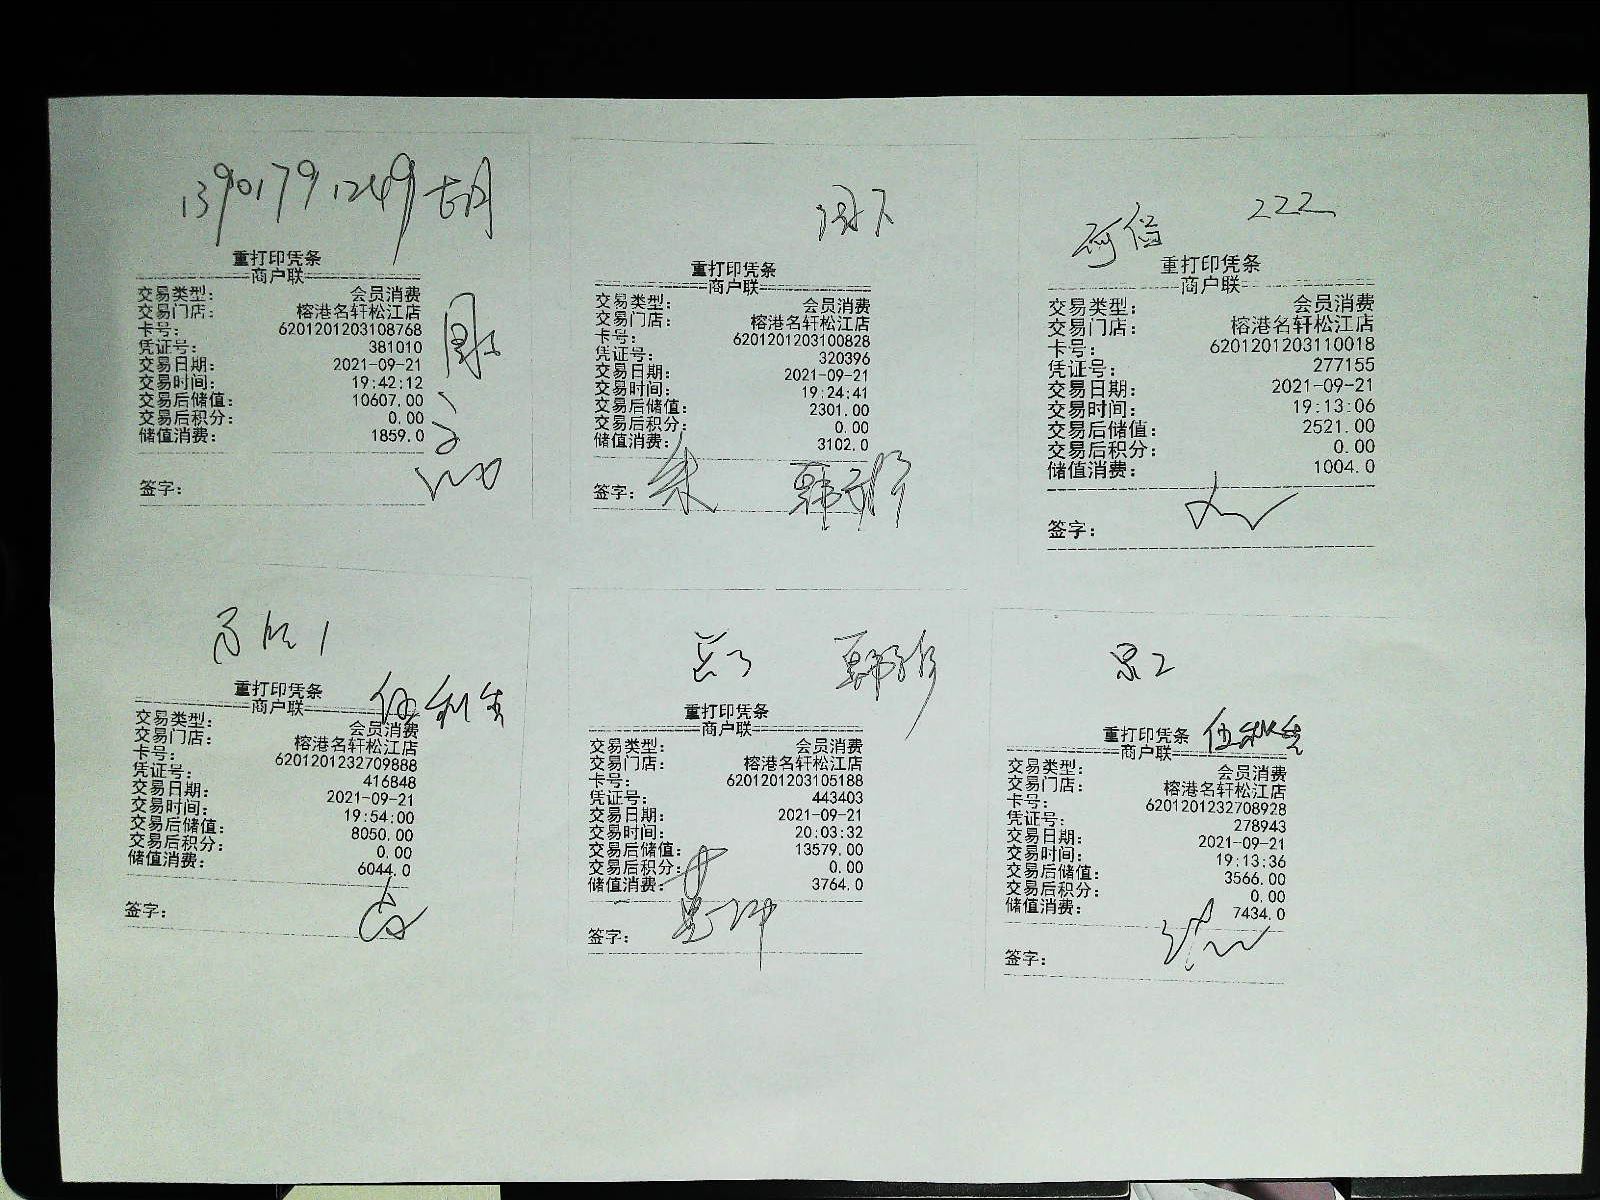 13901791249 胡
重打印凭条
商户联
交易类型: 会员消费
交易门店: 榕港名轩松江店
卡号: 6201201203108768
凭证号: 381010
交易日期: 2021-09-21
交易时间: 19:42:12
交易后储值: 10607.00
交易后积分: 0.00
储值消费: 1859.0
签字:
重打印凭条
商户联
交易类型: 会员消费
交易门店: 榕港名轩松江店
卡号: 6201201203100828
凭证号: 320396
交易日期: 2021-09-21
交易时间: 19:24:41
交易后储值: 2301.00
交易后积分: 0.00
储值消费: 3102.0
签字: 朱
222
重打印凭条
商户联
交易类型: 会员消费
交易门店: 榕港名轩松江店
卡号: 6201201203110018
凭证号: 277155
交易日期: 2021-09-21
交易时间: 19:13:06
交易后储值: 2521.00
交易后积分: 0.00
储值消费: 1004.0
签字:
重打印凭条
商户联
交易类型: 会员消费
交易门店: 榕港名轩松江店
卡号: 6201201232709888
凭证号: 416848
交易日期: 2021-09-21
交易时间: 19:54:00
交易后储值: 8050.00
交易后积分: 0.00
储值消费: 6044.0
签字:
重打印凭条
商户联
交易类型: 会员消费
交易门店: 榕港名轩松江店
卡号: 6201201203105188
凭证号: 443403
交易日期: 2021-09-21
交易时间: 20:03:32
交易后储值: 13579.00
交易后积分: 0.00
储值消费: 3764.0
签字:
重打印凭条
商户联
交易类型: 会员消费
交易门店: 榕港名轩松江店
卡号: 6201201232708928
凭证号: 278943
交易日期: 2021-09-21
交易时间: 19:13:36
交易后储值: 3566.00
交易后积分: 0.00
储值消费: 7434.0
签字: